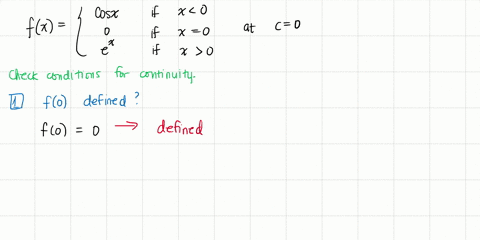 cosx if x < 0
f(x) = { 0 if x = 0 at c = 0
e^x if x > 0
Check conditions for continuity.
1 f(0) defined ?
f(0) = 0 → defined